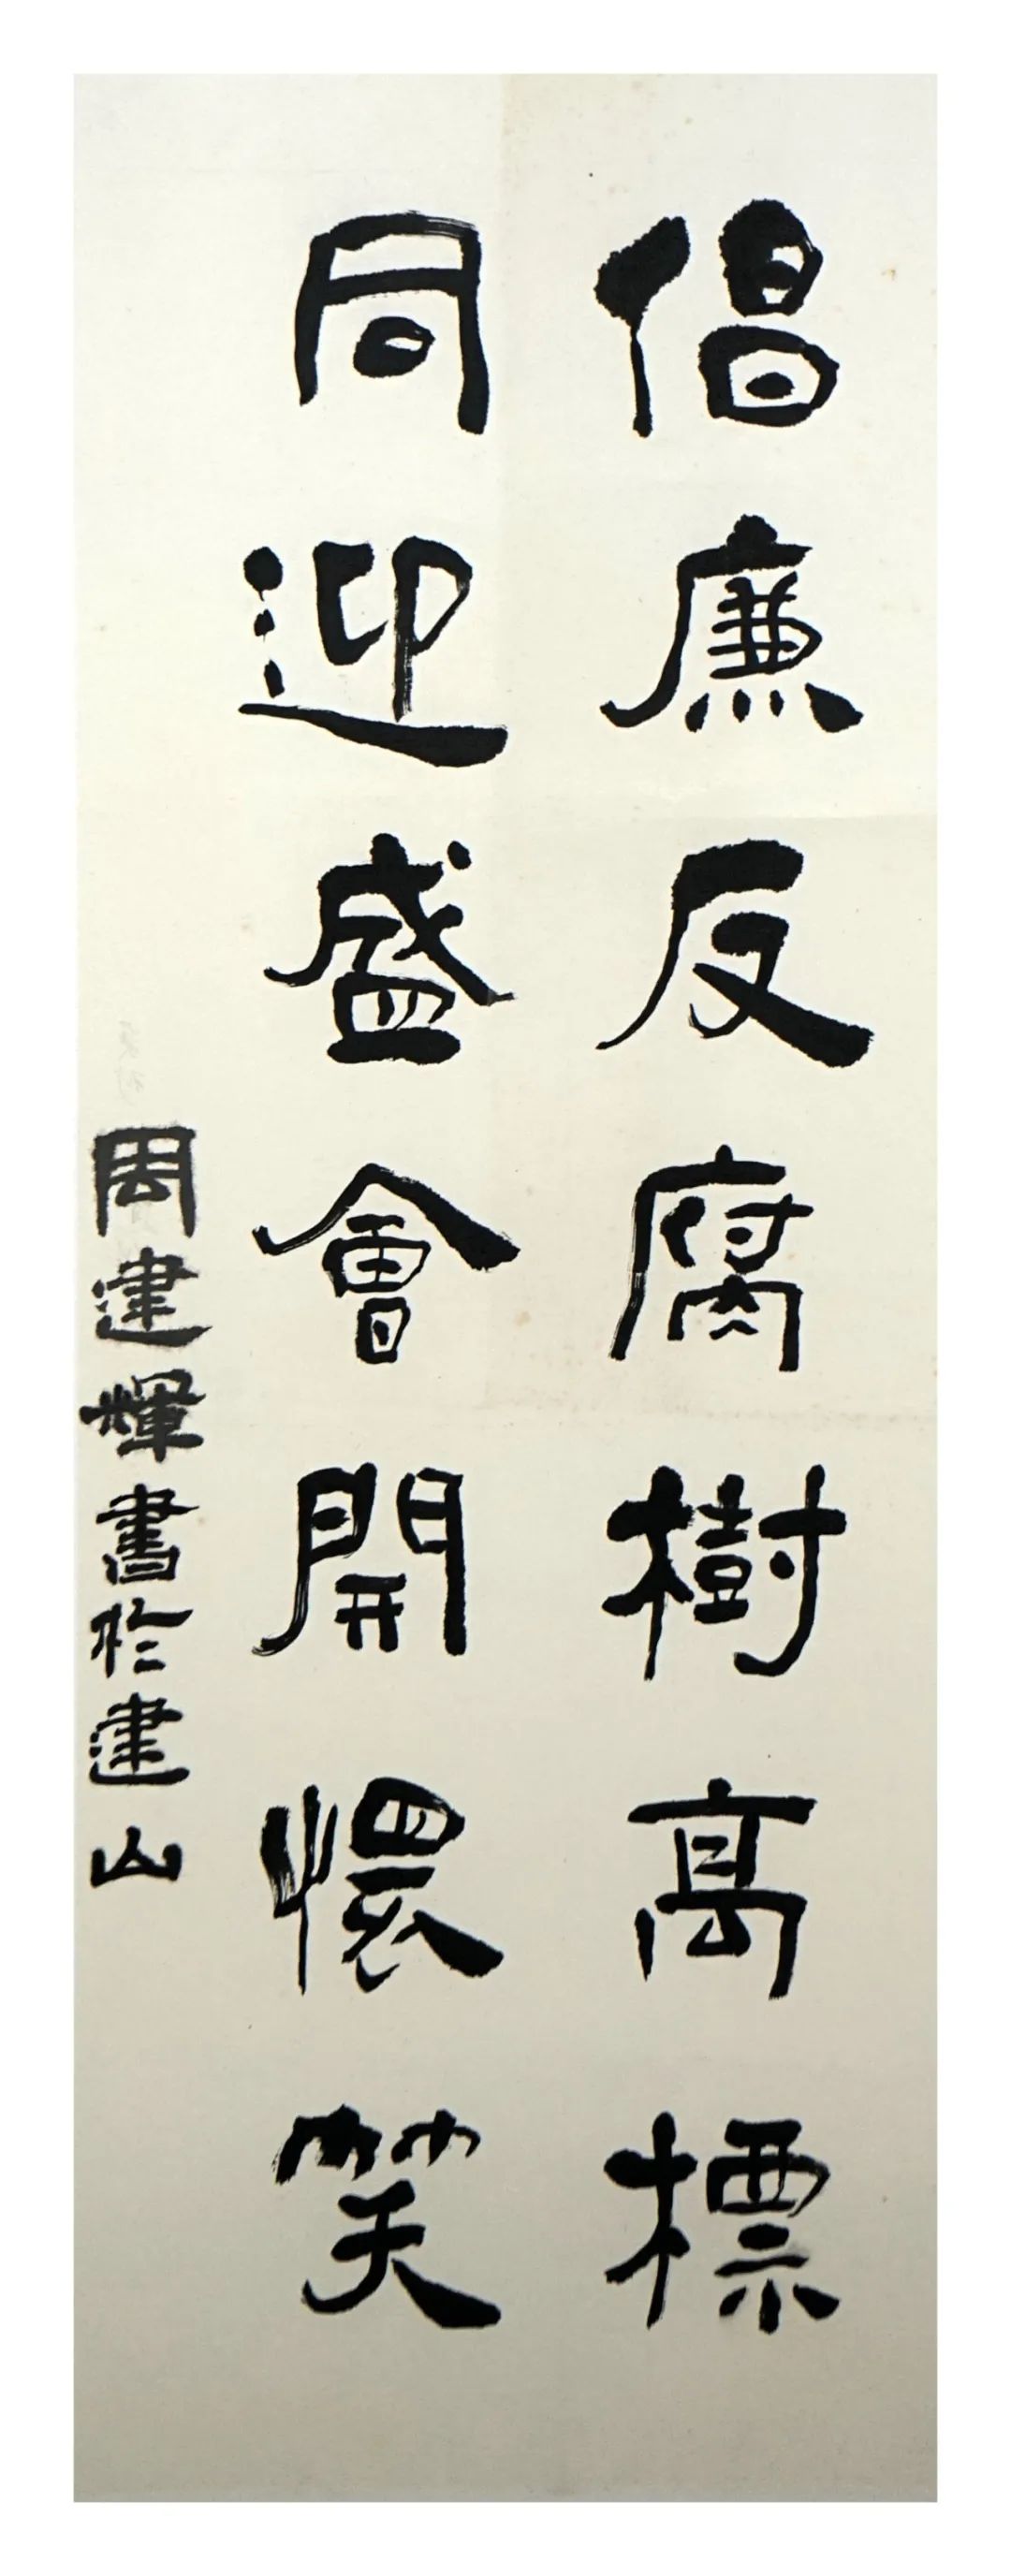 倡廉反腐樹高標
同迎盛會開懷笑
周建輝書於建山